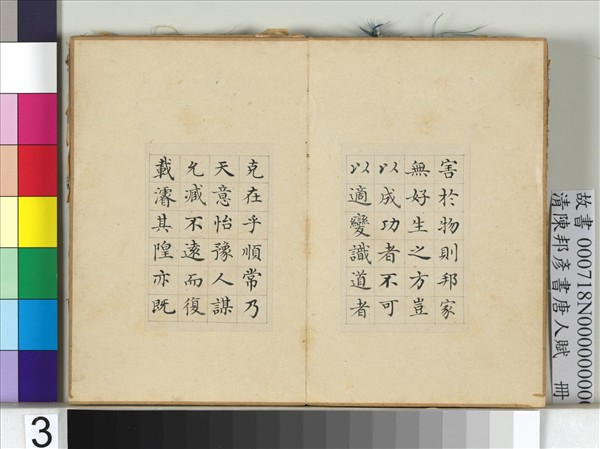 害於物則邦家
無好生之方豈
以成功者不可
以適變識道者
克在乎順常乃
天意怡豫人謀
允滅不遠而復
載濬其隍亦既
故書 000718N00000000
清陳邦彥書唐人賦 冊
3